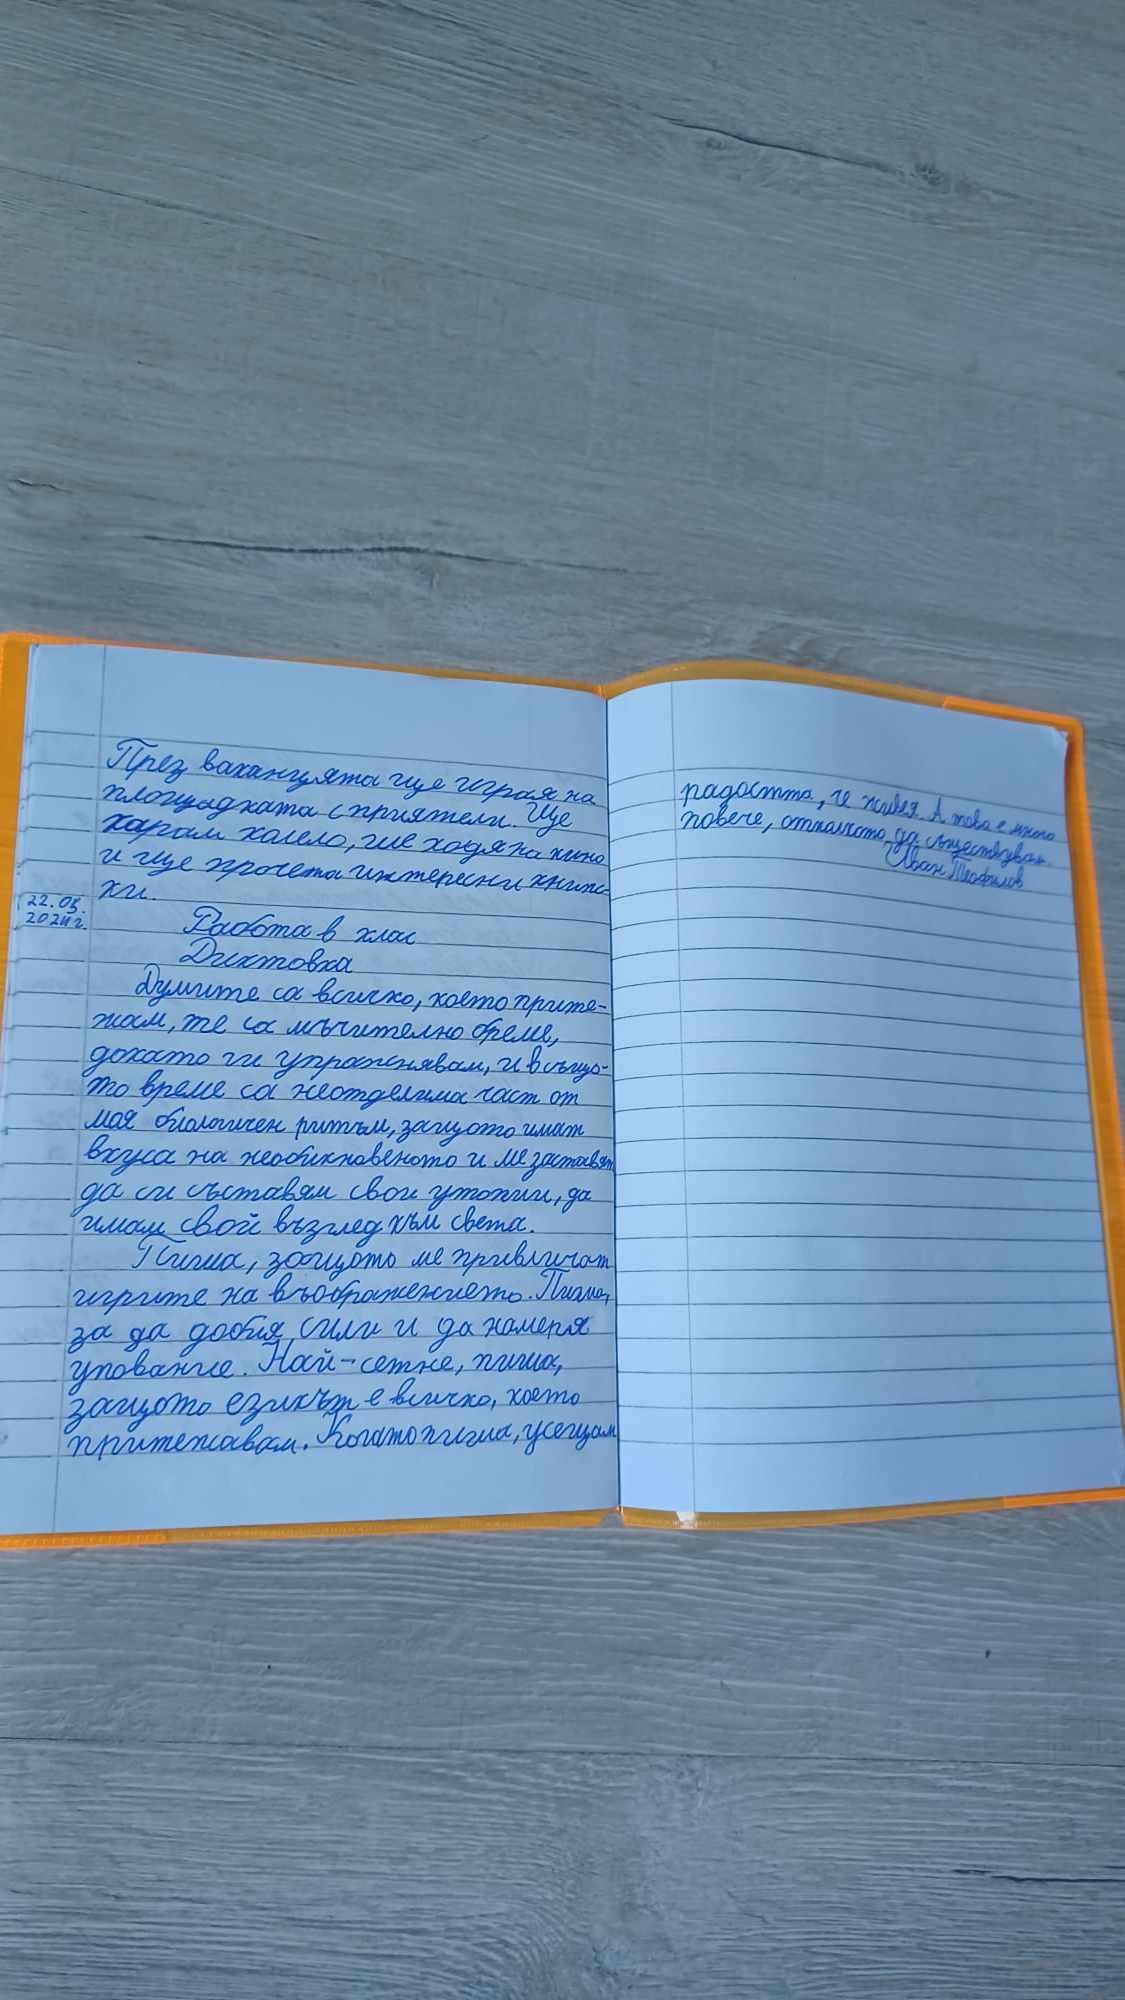 През ваканцията ще играя на
площадката с приятели. Ще
карам колело, ще ходя на кино
и ще прочета интересни книж-
ки.
22.03.
2024г.
Работа в клас
Диктовка
Думите са всичко, което прите-
жам, те са мъчително бреме,
докато ги упражнявам, и в също-
то време са неотделима част от
моя биологичен ритъм, защото имат
вкуса на необикновеното и ме заставят
да си съставям свои утопии, да
имам свой възглед към света.
Пиша, защото ме привличат
игрите на въображението. Пиша,
за да добия сили и да намеря
упование. Най-сетне, пиша,
защото езикът е всичко, което
притежавам. Когато пиша, усещам
радостта, че живея. А това е много
повече, отколкото да съществувам.
Иван Теофилов